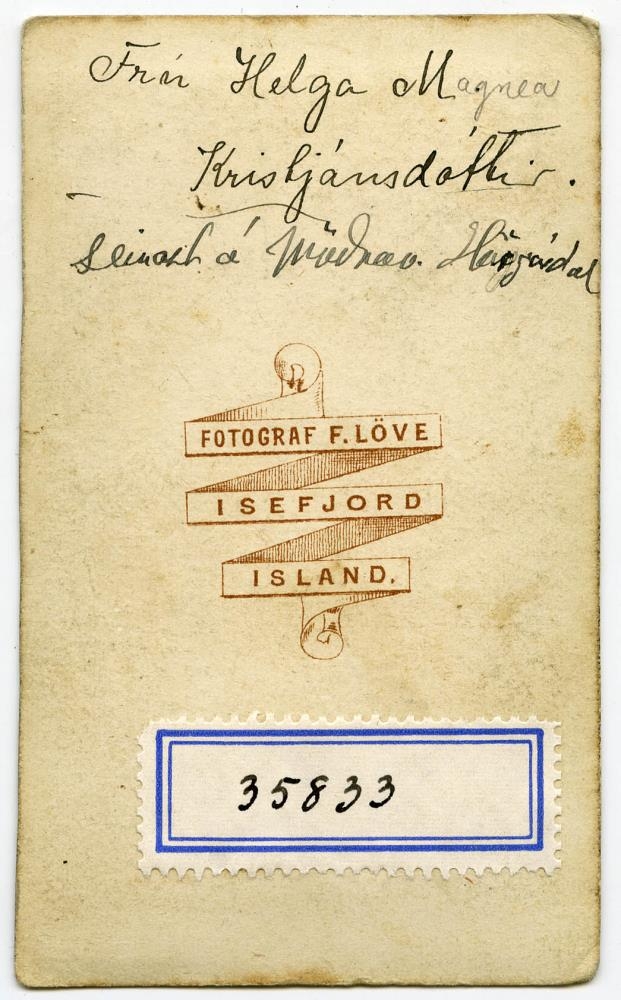 Frú Helga Magnea
Kristjánsdóttir.
seinast á Möðruv. Hörgárdal
FOTOGRAF F. LÖVE
ISEFJORD
ISLAND.
35833